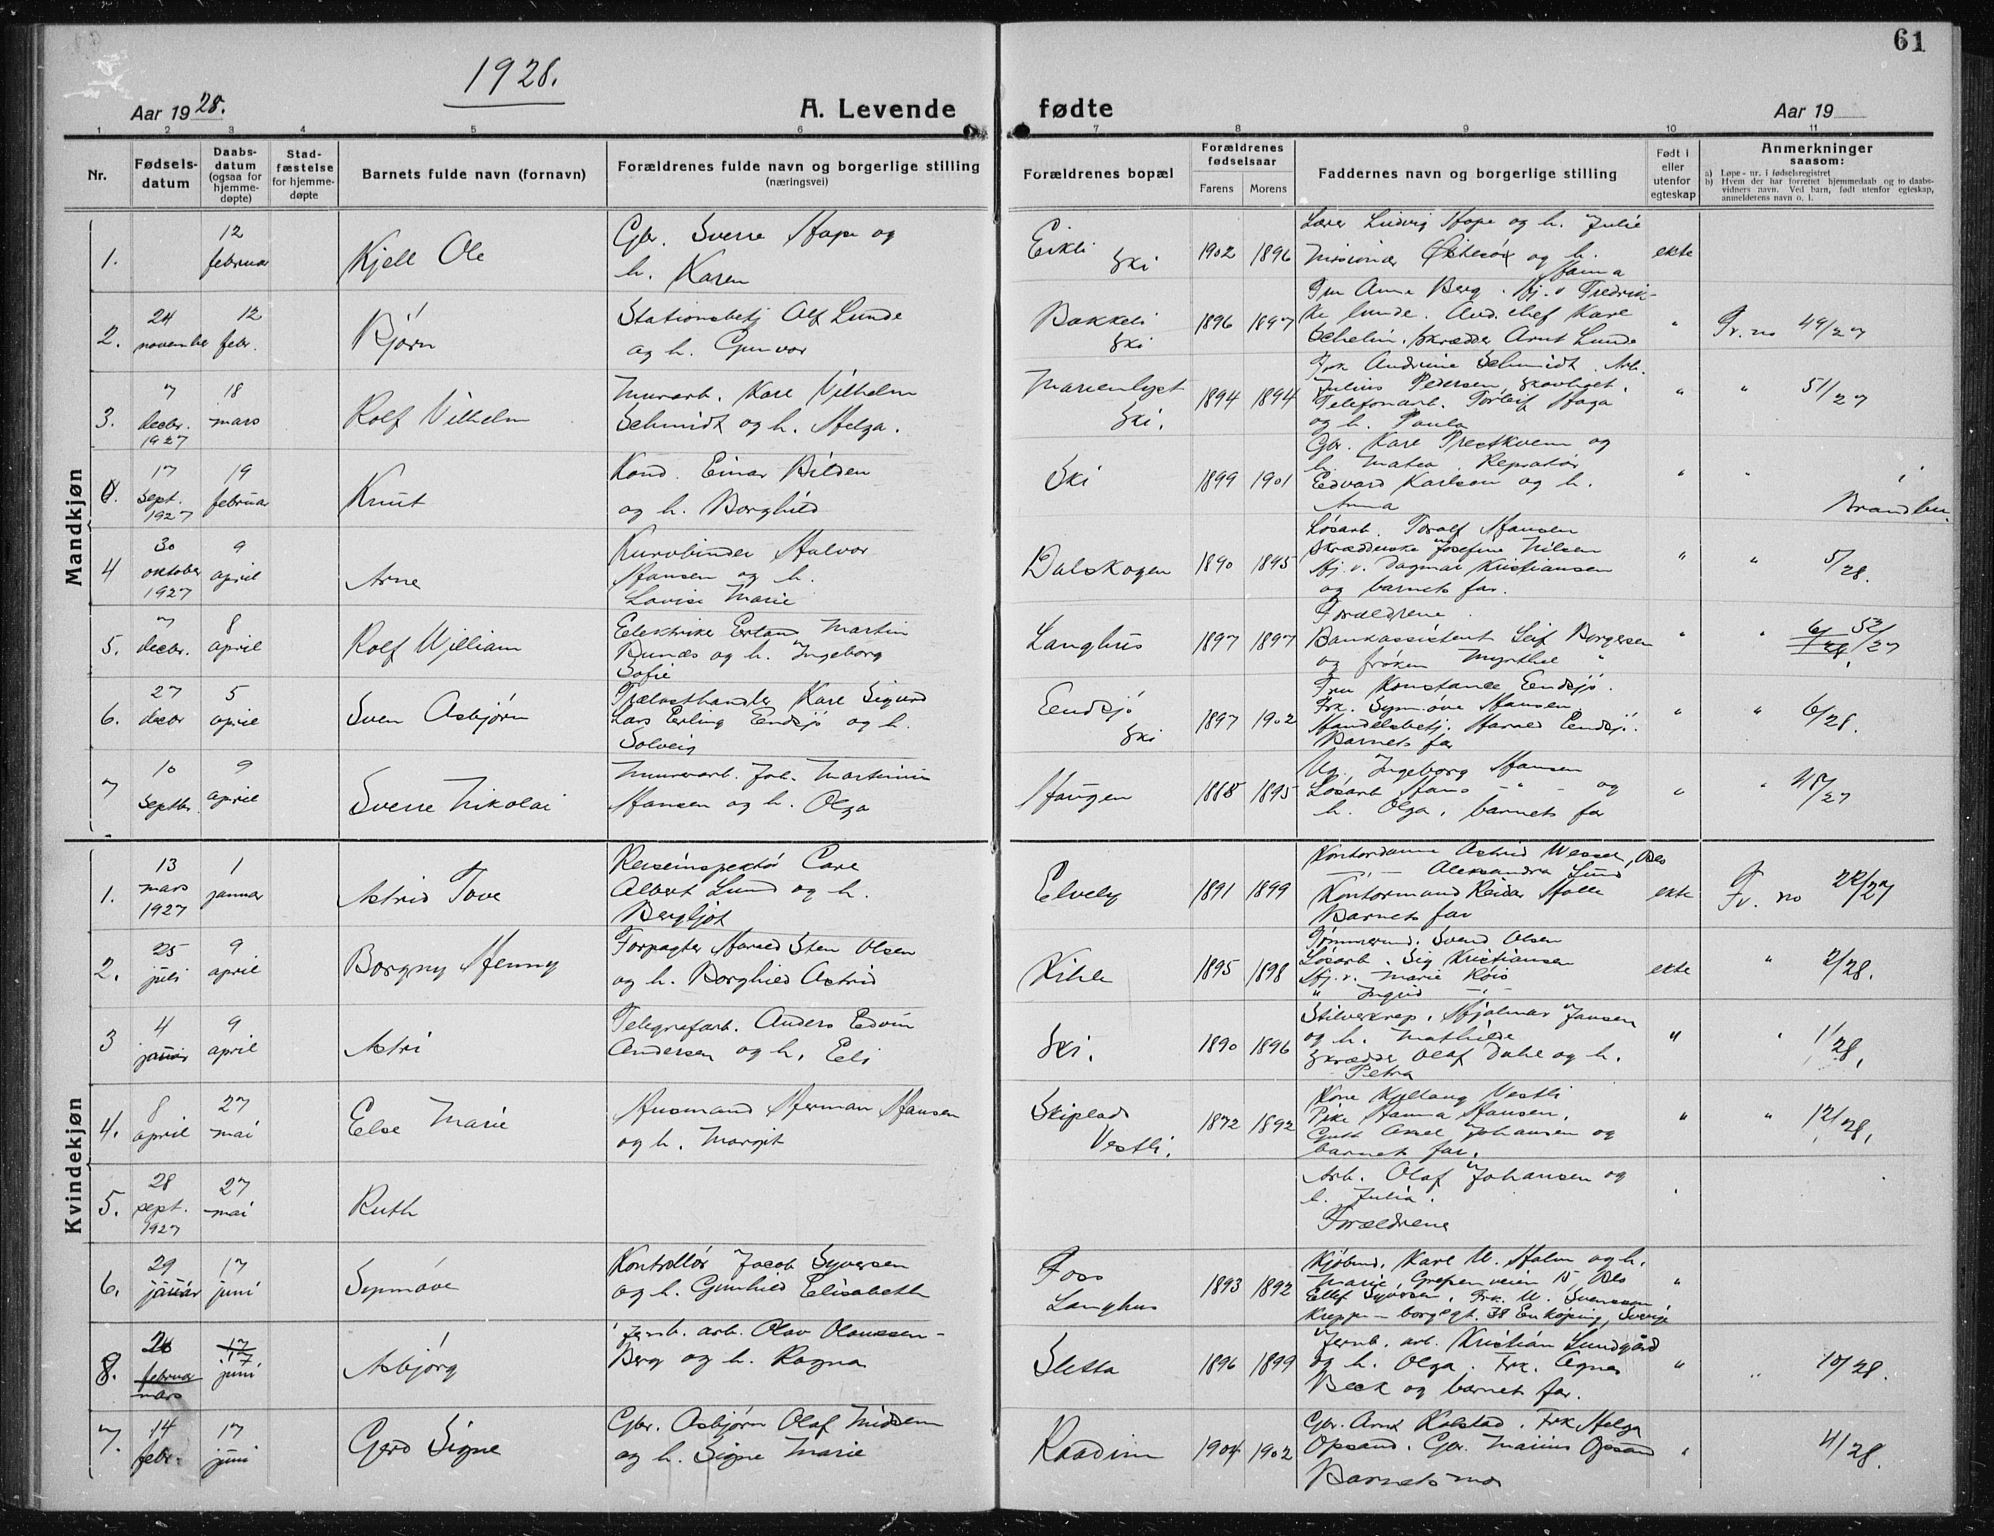 61
1928.
Aar 1928.
A. Levende
fødte
Aar 19
1 2 3 4 5 6 7 8 9 10 11
Nr.
Fødsels-
datum
Daabs-
datum
(ogsaa for
hjemme-
døpte)
Stad-
fæstelse
for hjemme-
døpte
Barnets fulde navn (fornavn)
Forældrenes fulde navn og borgerlige stilling
(næringsvei)
Forældrenes bopæl
Forældrenes
fødselsaar
Farens Morens
Faddernes navn og borgerlige stilling
Født i
eller
utenfor
egteskap
Anmerkninger
saasom:
a) Løpe-nr. i fødselsregistret
b) Hvem der har forrettet hjemmedaab og to daabs-
vidners navn. Ved barn, født utenfor egteskap,
anmelderens navn o. l.
Mandkjøn
1.
12
februar
Kjell Ole
Gbr. Sverre Hope og
h. Karen
Eikli
Ski
1902 1896
Lærer Ludvig Hope og h. Julie
Missionær Østesø og h.
Hanna
ekte
2.
24
november
12
febr.
Bjørn
Stationsbetj Alf Lunde
og h. Gunvor
Bakkeli
Ski
1896 1897
Fru Anna Berg. Hj. v Fredrik-
ke Lunde. And. chef Kare
Schelin, skrædder Arnt Lunde
"
Fr. no 49/27
3.
7
decbr.
1927
18
mars
Rolf Vilhelm
Murarb. Kare Vilhelm
Schmidt og h. Helga.
Marienlyst
Ski.
1894 1894
Frk Andrine Schmidt. Arb.
Julius Pedersen, Skovlyst.
Telefonarb. Torleif Haga
og h. Paula
" " 51/27
0.
17
sept.
1927
19
februar
Knut
Kond. Einar Bilden
og h. Borghild
Ski
1899 1901
Gbr. Kare Prestkvern og
h. Matea. Repratør
Edvard Karlson og h.
Anna
" "
Brandbu.
4
30
oktober
1927
9
april
Arne
Kurvbinder Halvor
Hansen og h.
Lovise Marie
Dalskogen
1890 1895
Løsarb. Toralf Hansen
Skrædderske Josefine Nilsen
Hj. v. Dagmar Kristiansen
og barnets far.
" " 5/28.
5.
7
decbr.
8
april
Rolf William
Elektriker Erland Martin
Bunæs og h. Ingeborg
Sofie
Langhus
1897 1897
Forældrene.
Bankassistent Leif Borgersen
og frøken Myrthel "
" " 53/27
6.
27
decbr
5
april
Sven Asbjørn
Trælasthandler Kare Sigurd
Lars Erling Eendsjø og h.
Solveig
Eendsjø
Ski
1897 1902
Fru Konstance Eendsjø.
Frk. Synnøve Hansen
Handelsbetj. Harald Eendsjø.
Barnets far
" " 6/28.
7
10
septbr.
9
april
Sverre Nikolai
Murerarb. Joh. Martinin
Hansen og h. Olga
Haugen
1888 1895
Ug. Ingeborg Hansen
Løsarb Hans - " - og
h. Olga, barnets far
" " 48/27
Kvindekjøn
1.
13
mars
1927
1
januar
Astrid Tove
Reiseinspektør Care
Albert Lund og h.
Bergljot
Elvely
1891 1899
Kontordame Astrid Wessel, Oslo
—"— Aleksandra Lund
Kontormand Reidar Holle
Barnets far
ekte
Fr. no 22/27
2.
25
juli
9
april
Borgny Henny
Forpagter Harald Sten Olsen
og h. Borghild Astrid
Kihle
1895 1898
Tømmermd. Svend Olsen
Løsarb. Sig Kristiansen
Hj. v. Marie Røis
" Ingrid —"—
ekte
" 2/28.
3
4
januar
9
april
Astri
Telegrafarb. Anders Edvin
Andersen og h. Elli
Ski.
1890 1896
Stilverksrep. Hjalmar Jansen
og h. Mathilde
Skrædder Olaf Dahl og h.
Petra
" " 1/28.
4.
8
april
27
mai
Else Marie
Husmand Herman Hansen
og h. Margit
Skiplad
Vestli.
1872 1892
Kone Kyllaug Vestli
Pike Hanna Hansen.
Gutt Aksel Johansen og
barnets far.
" " 12/28.
5.
28
sept.
1927
27
mai
Ruth
Arb. Olaf Johansen og
h. Julia.
Forældrene
6.
29
januar
17
juni
Synnøve
Kontrollør Jacob Syversen
og h. Gunhild Elisabeth
Foss
Langhus
1893 1892
Kjøbmd. Karl M. Holm og h.
Marie, Grefsenveien 15 Oslo
Ellef Syversen, Frk. M. Svensson,
Kreppe-borgsgt. 38 Enkøping, Sverige
"
8.
26
februar
mars
17
17
juni
Asbjørg
Jernb. arb. Olav Olaussen-
Berg og h. Ragna
Sletta
1896 1899
Jernb. arb. Kristian Lundgård
og h. Olga. Frk. Agnes
Beck og barnets far.
" " 10/28.
7.
14
febr.
17
juni
Gerd Signe
Gbr. Asbjørn Olaf Midsem
og h. Signe Marie
Raadim
1904 1902
Gbr. Arnt Kolstad. Frk Helga
Opsand. Gbr. Marius Opsand
Barnets mor
" 4/28.